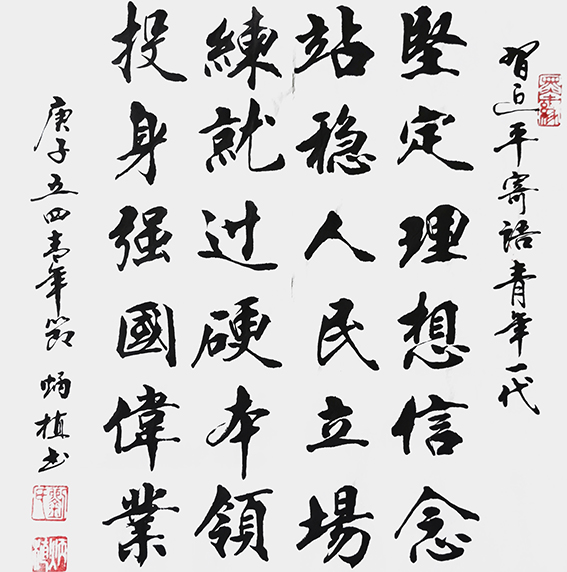 习近平寄语青年一代
堅定理想信念
站稳人民立場
練就过硬本领
投身强國偉業
庚子五四青年節 炳植书